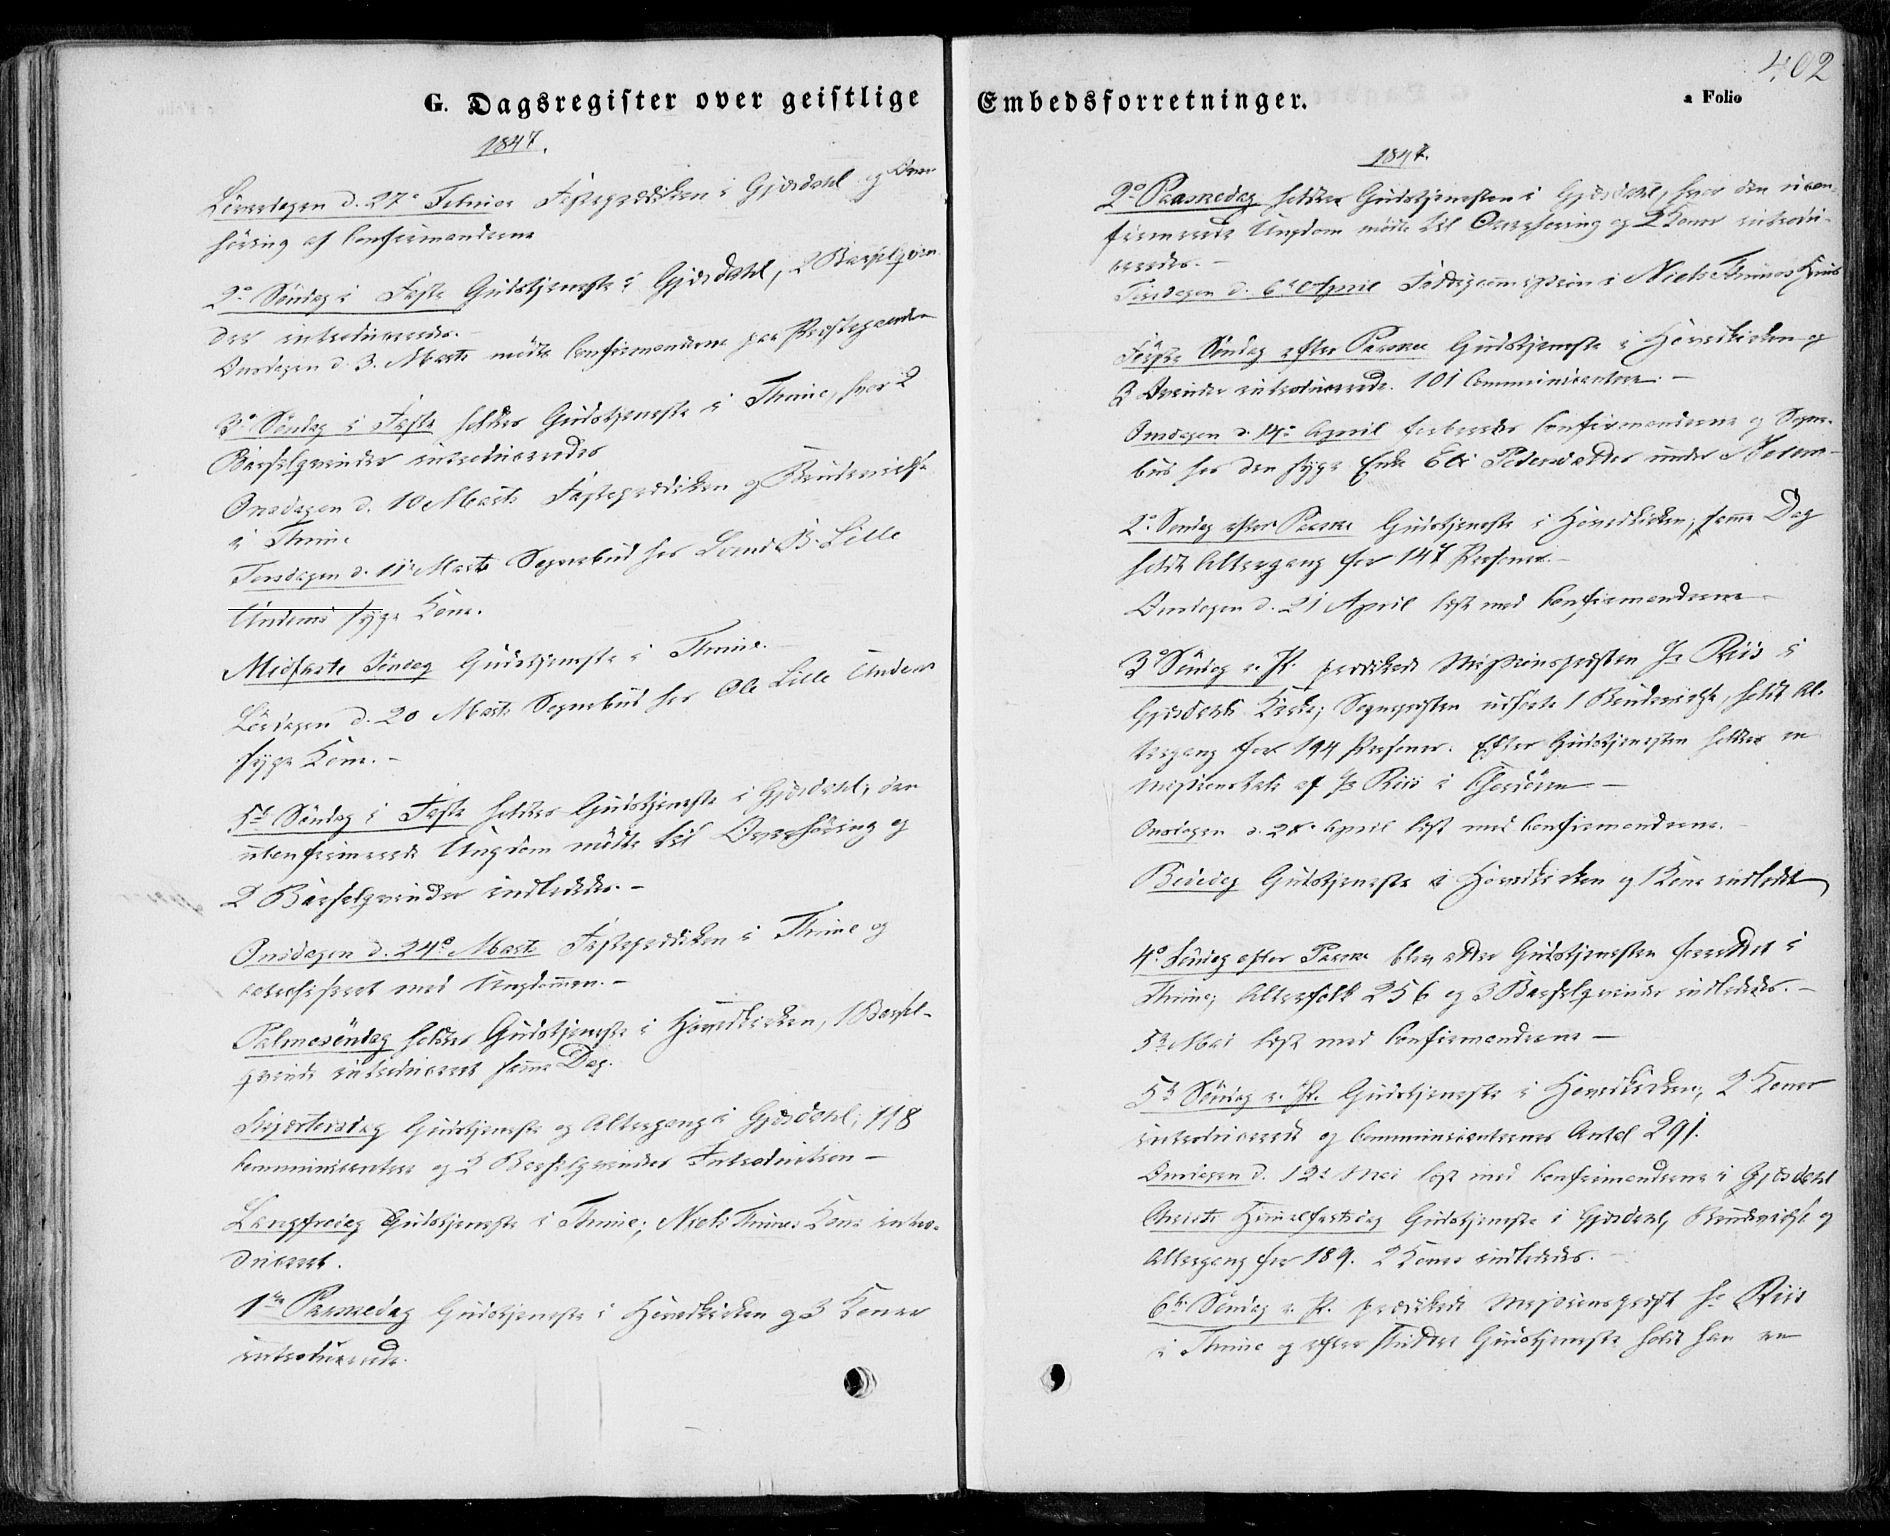 G. Dagsregister over geistlige
1847.
Löverdagen d. 27de Februar Fasteprædiken i Gjæsdahl og Over-
höring af Confirmanderne
2den Söndag i Faste Gudstjeneste i Gjæsdahl, 2 Barselqvin-
der introduceredes.
Onsdagen d. 3. Marts mödte Confirmanderne paa Præstegaarden
3de Söndag i Faste holdtes Gudstjeneste i Thime, hvor 2
Barselqvinder introduceredes
Onsdagen d. 10 Marts Fasteprædiken og Brudevielse
i Thime
Torsdagen d. 11te Marts Sognebud hos Lars B. Lille
Undems syge Kone.
Midfaste Söndag Gudstjeneste i Thime.
Lördagen d. 20 Marts Sognebud hos Ole Lille Undem
syge Kone. -
5te Söndag i Faste holdtes Gudstjeneste i Gjæsdahl; den
ukonfirmerede Ungdom mödte til Overhöring og
2 Barselqvinder indlededes. -
Onsdagen d. 24de Marts Fasteprædiken i Thime og
catechiseret med Ungdommen. -
Palmesöndag holdtes Gudstjeneste i Hovedkirken, 1 Barsel-
qvinde introduceret samme Dag.
Skjærtorsdag Gudstjeneste og Altergang i Gjæsdahl; 118
Communicantere og 2 Barselqvinders Introduction -
Langfredag Gudstjeneste i Thime; Niels Thimes Kone intro-
duceret.
1ste Paaskedag Gudstjeneste i Hovedkirken og 3 Koner
introducerede.
Embedsforretninger.
a Folio
402
1847.
2den Paaskedag holdtes Gudstjenesten i Gjæsdahl, hvor den ucon-
firmerede Ungdom mödte til Overhöring og 2 Koner introdu-
ceredes. -
Tirsdagen d. 6te April Fattigcommission i Niels Thimes Huus
Förste Söndag efter Paaske Gudstjeneste i Hovedkirken og
3 Qvinder introducerede. 101 Communicantere. -
Onsdagen d. 14de April forberedes Confirmanderne og Sogne-
bud hos den syge Enke Eli Pedersdatter under
2den Söndag efter Paaske Gudstjeneste i Hovedkirken; samme Dag
holdt Altergang for 147 Personer. -
Onsdagen d. 21 April læst med Confirmanderne -
3de Söndag e. P. prædikede Missionspræsten Hr Riis i
Gjæsdahls Kirke; Sognepræsten udförte 1 Brudevielse, holdt Al-
tergang for 194 Personer. Efter Gudstjenesten holdtes en
Missionstale af Hr Riis i -
Onsdagen d. 28de April læst med Confirmanderne. -
Bededag Gudstjeneste i Hovedkirken og 1 Kone indledet
4de Söndag efter Paaske blev atter Gudstjenesten forrettet i
Thime; Altersfolk 256 og 3 Barselqvinder indlededes. -
5te Mai læst med Confirmanderne -
5te Söndag e. P. Gudstjeneste i Hovedkirken, 2 Koner
introducerede og Communicanternes Antal 291.
Onsdagen d. 12te Mai læst med Confirmanderne i Gjæsdahl
Christi Himmelfartsdag Gudstjeneste i Gjæsdahl, Brudevielse og
Altergang for 189. 2 Koner indlededes. -
6te Söndag e. P. prædikede Missionspræst Hr Riis
i Thime og efter sluttet Gudstjeneste holdt han en